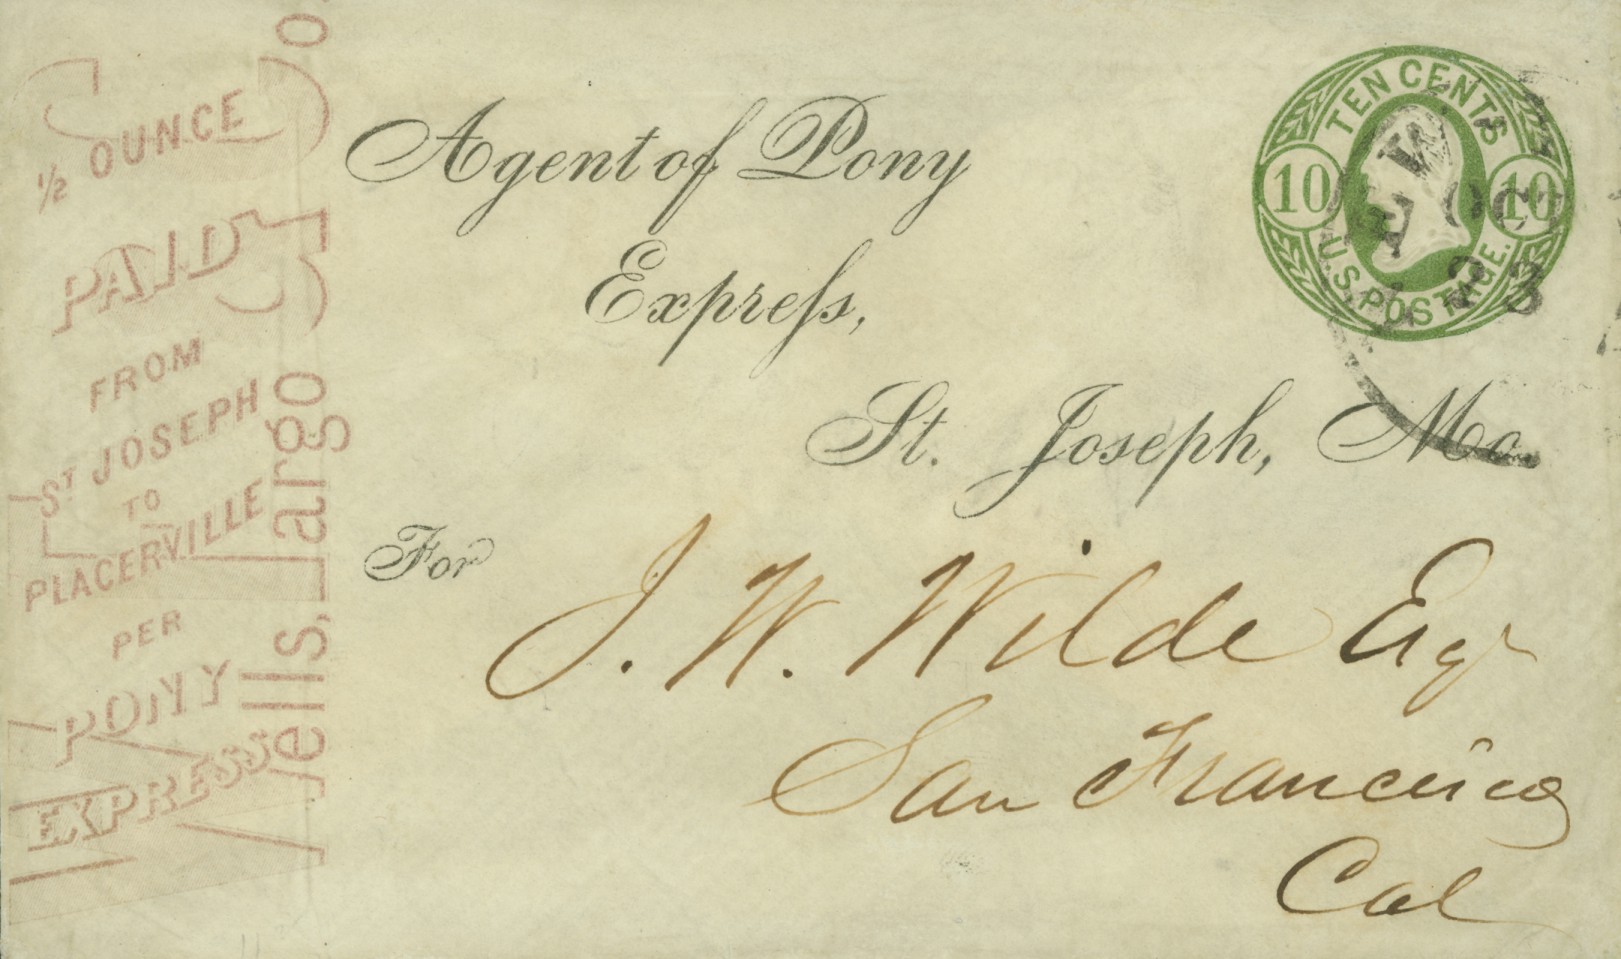 ½ OUNCE
PAID
FROM
ST JOSEPH
TO
PLACERVILLE
PER
PONY
EXPRESS
Wells, Fargo & Co
Agent of Pony
Express,
St. Joseph, Mo.
For
J. W. Wilde Esqr
San Francisco
Cal
TEN CENTS
10 10
U.S. POSTAGE.
NEW
OCT
23